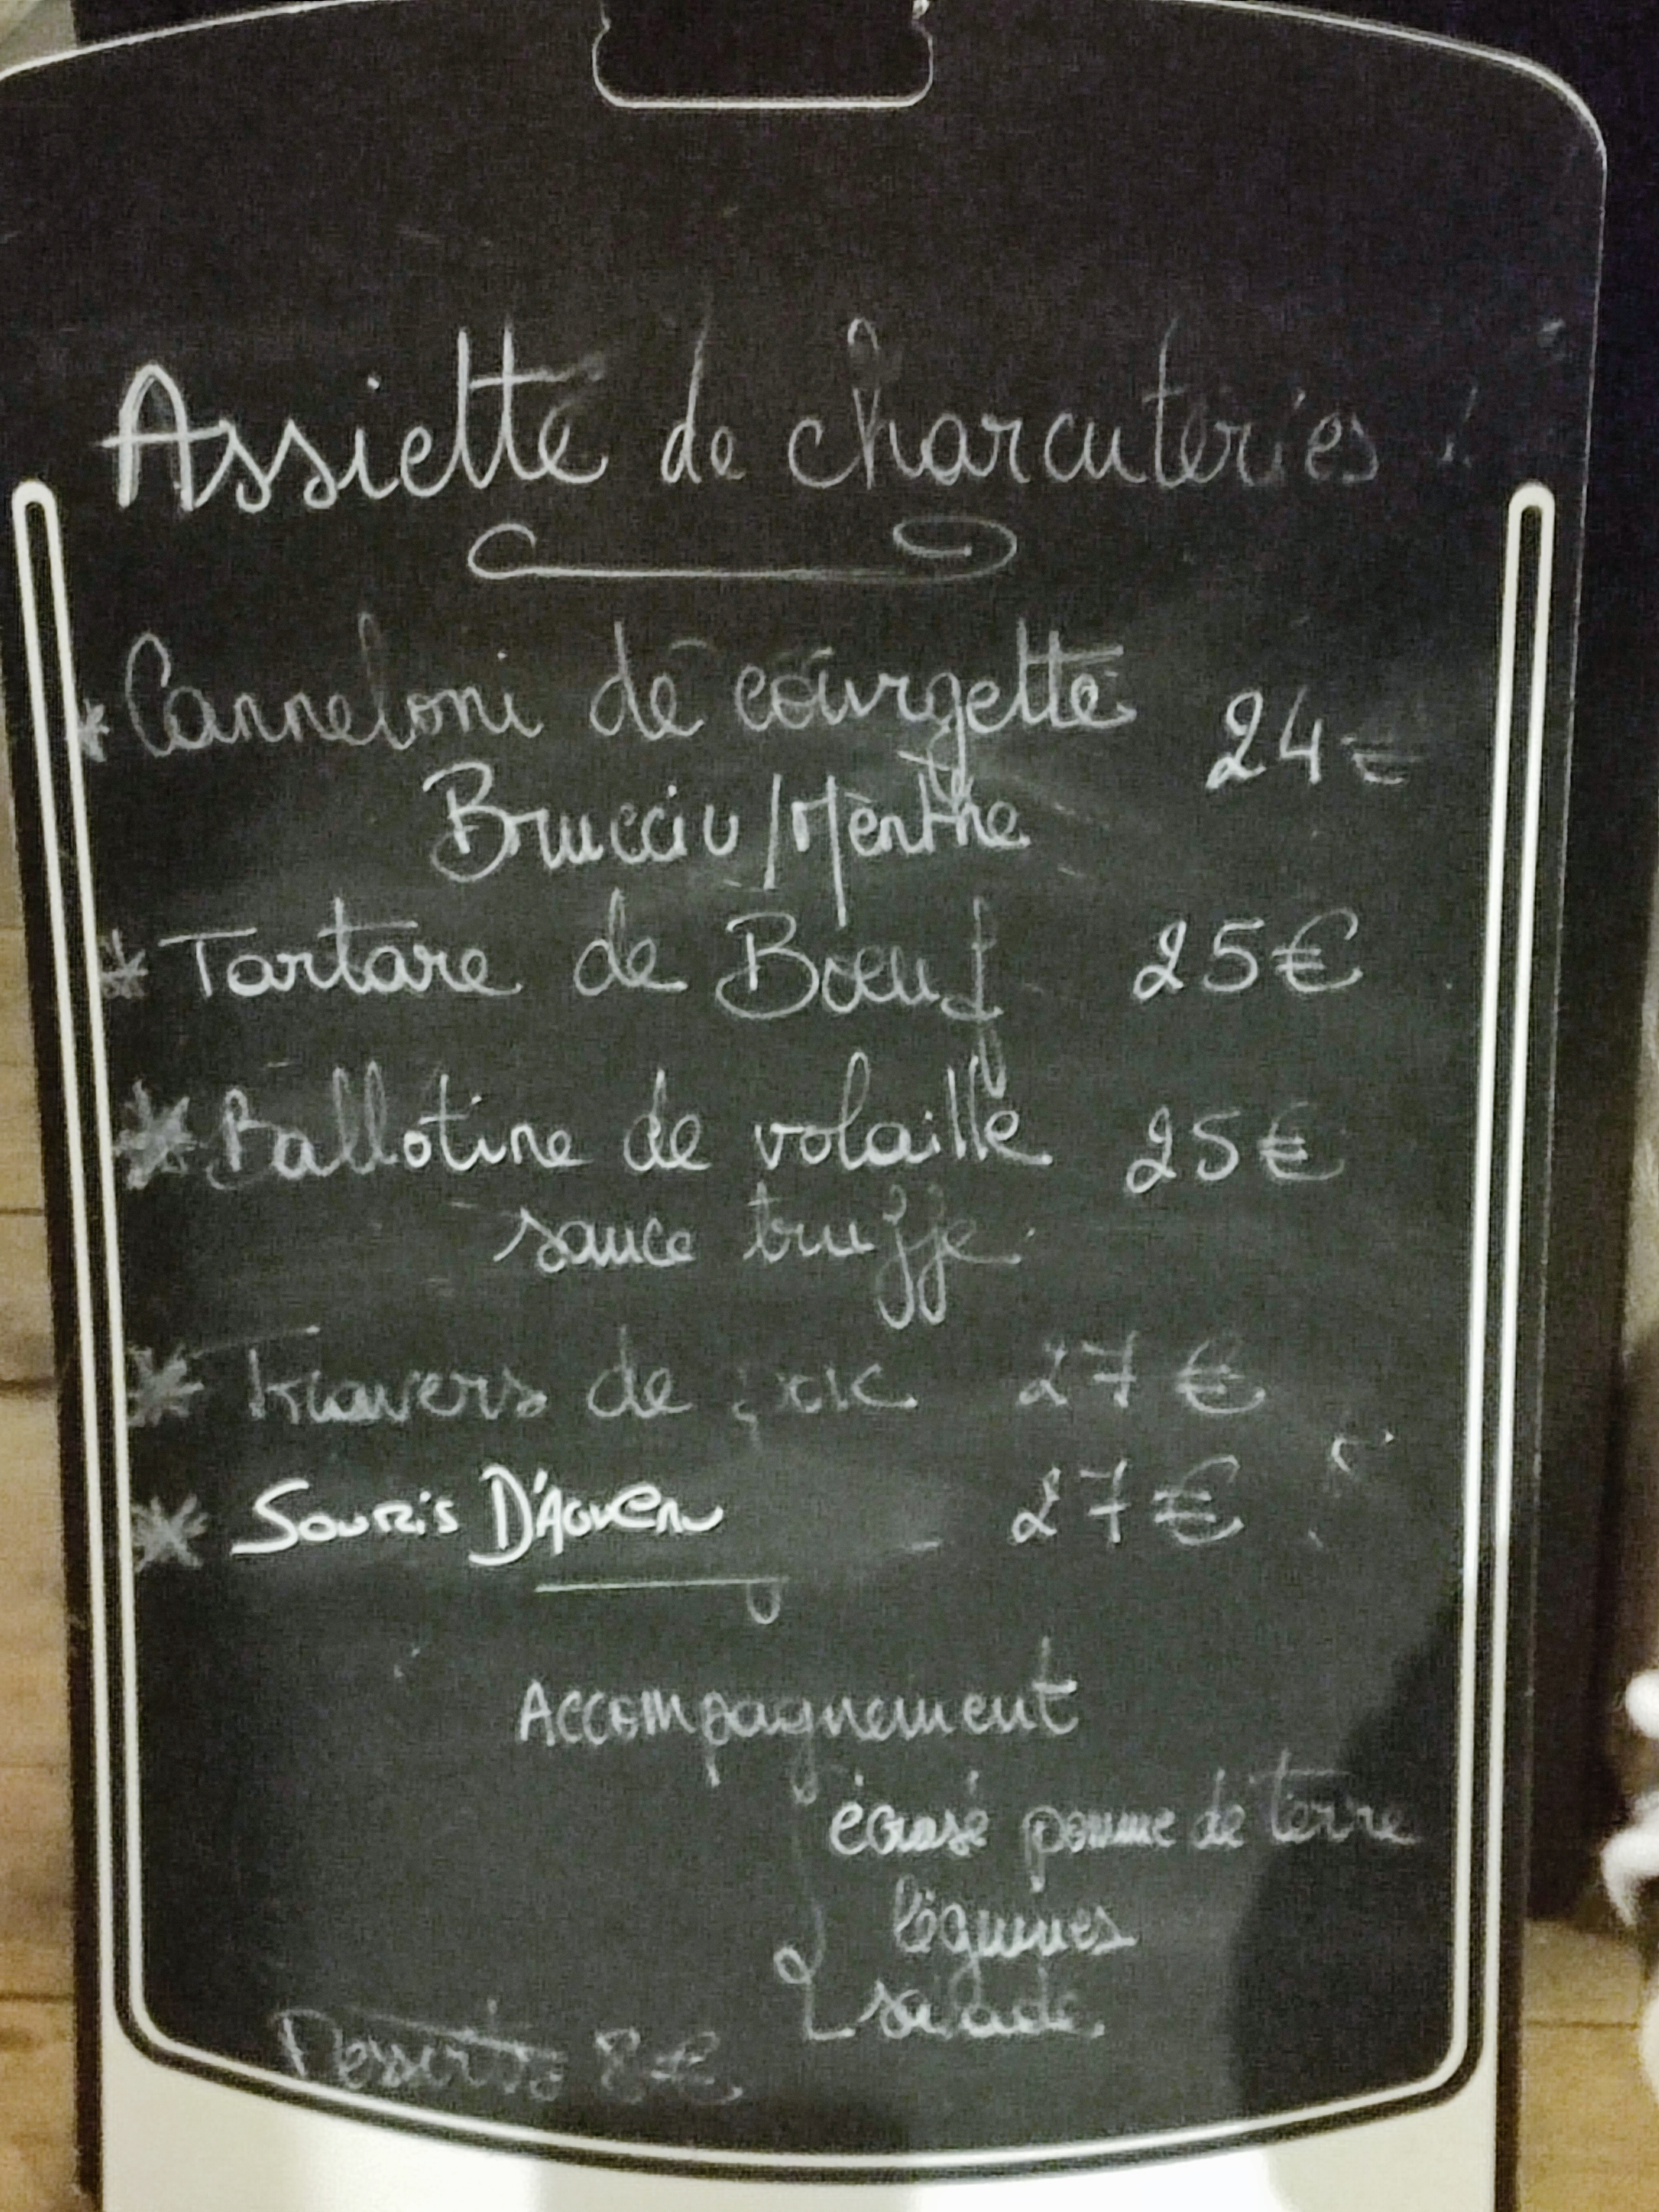 Assiette de charcuteries
* Canneloni de courgette 24€
Brucciu / Menthe
* Tartare de Boeuf 25€
* Ballotine de volaille 25€
sauce truffe
* Travers de porc 27€
* Souris D'Agneau 27€
Accompagnement
écrasé pomme de terre
légumes
salade
Desserts 8€